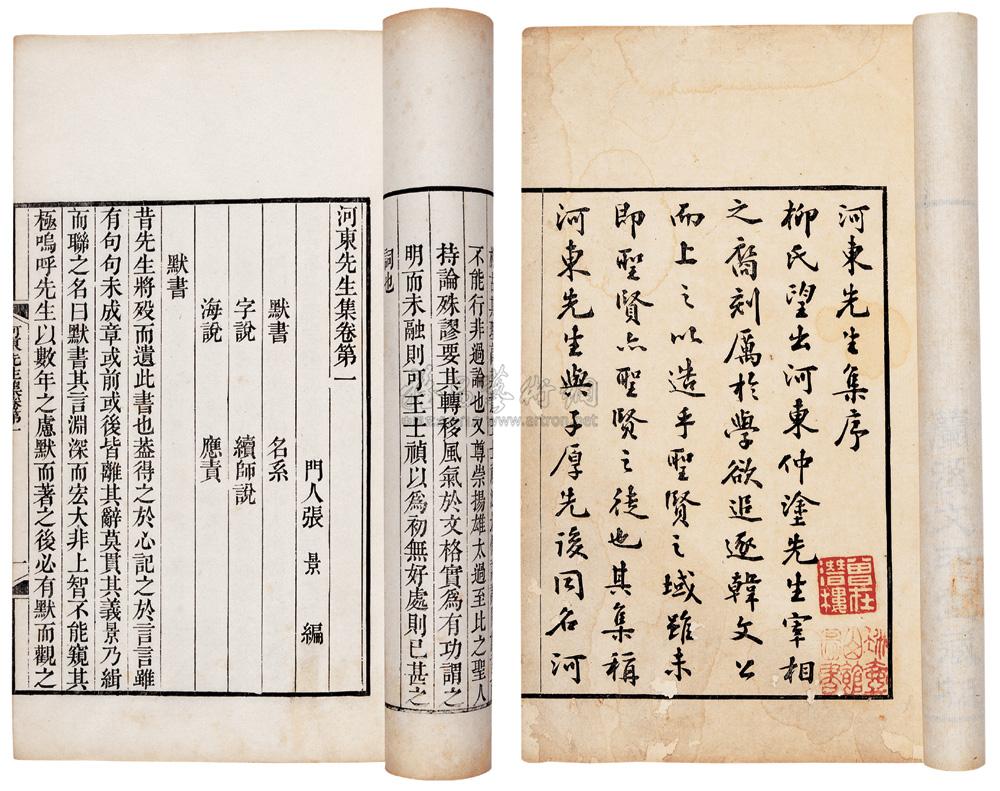 河東先生集序
柳氏望出河東仲塗先生宰相
之裔刻厲於學欲追逐韓文公
而上之以造乎聖賢之域雖未
即聖賢亦聖賢之徒也其集稱
河東先生與子厚先後同名河
曾在
潛樓
不能行非過論也又尊崇揚雄太過至比之聖人
持論殊謬要其轉移風氣於文格實為有功謂之
明而未融則可王士禎以為初無好處則已甚之
詞也
河東先生集卷第一
門人張景編
默書 名系
字說 續師說
海說 應責
默書
昔先生將歿而遺此書也葢得之於心記之於言言雖
有句句未成章或前或後皆離其辭莫貫其義景乃緝
而聯之名曰默書其言淵深而宏大非上智不能窺其
極嗚呼先生以數年之慮默而著之後必有默而觀之
河東先生集卷第一
一
artron.net